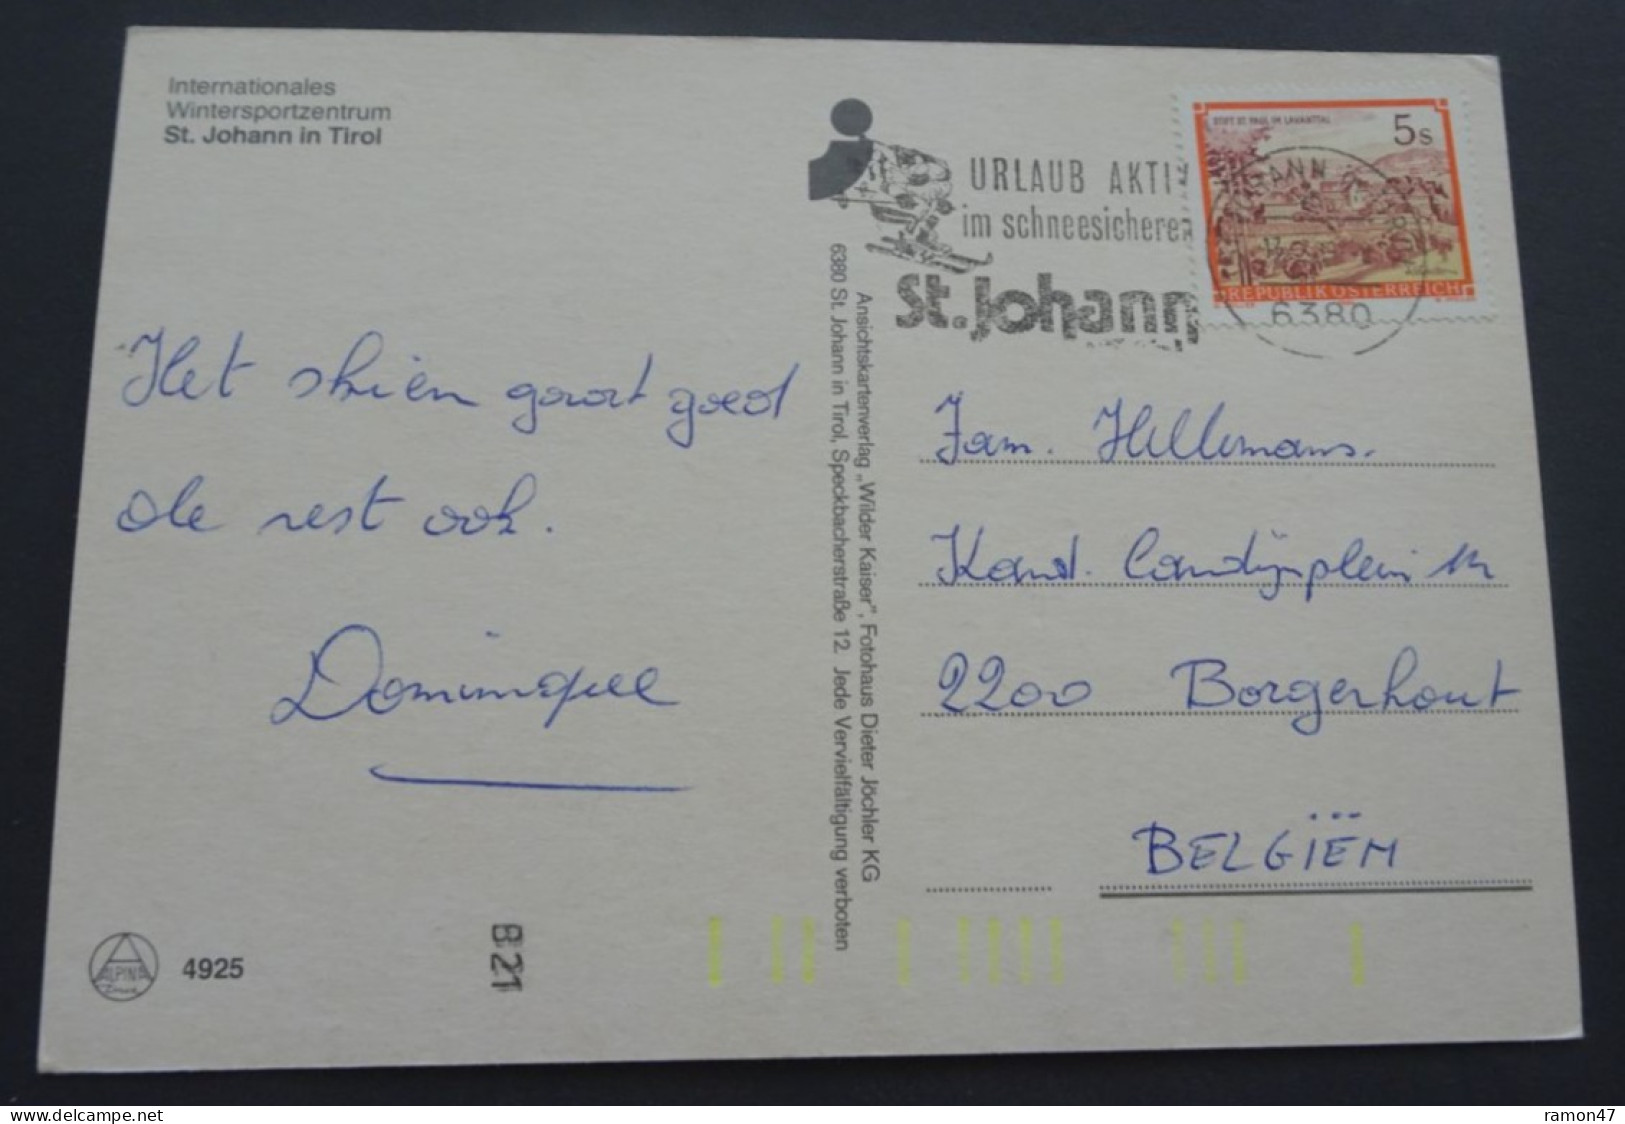 Internationales
Wintersportzentrum
St. Johann in Tirol
Het skiën gaat goed
de rest ook.
Dominique
ALPINA
4925
B21
Ansichtskartenverlag „Wilder Kaiser", Fotohaus Dieter Jöchler KG
6380 St. Johann in Tirol, Speckbacherstraße 12. Jede Vervielfältigung verboten
URLAUB AKTI
im schneesicheren
St. Johann
STIFT ST. PAUL IM LAVANTTAL
5s
REPUBLIK ÖSTERREICH
JOHANN
6380
Fam. Hellemans.
Kand.
2200 Borgerhout
BELGIËN
www.delcampe.net
ramon47